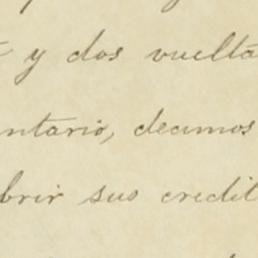 y dos vuelta
ntario, decimos
brir sus credit